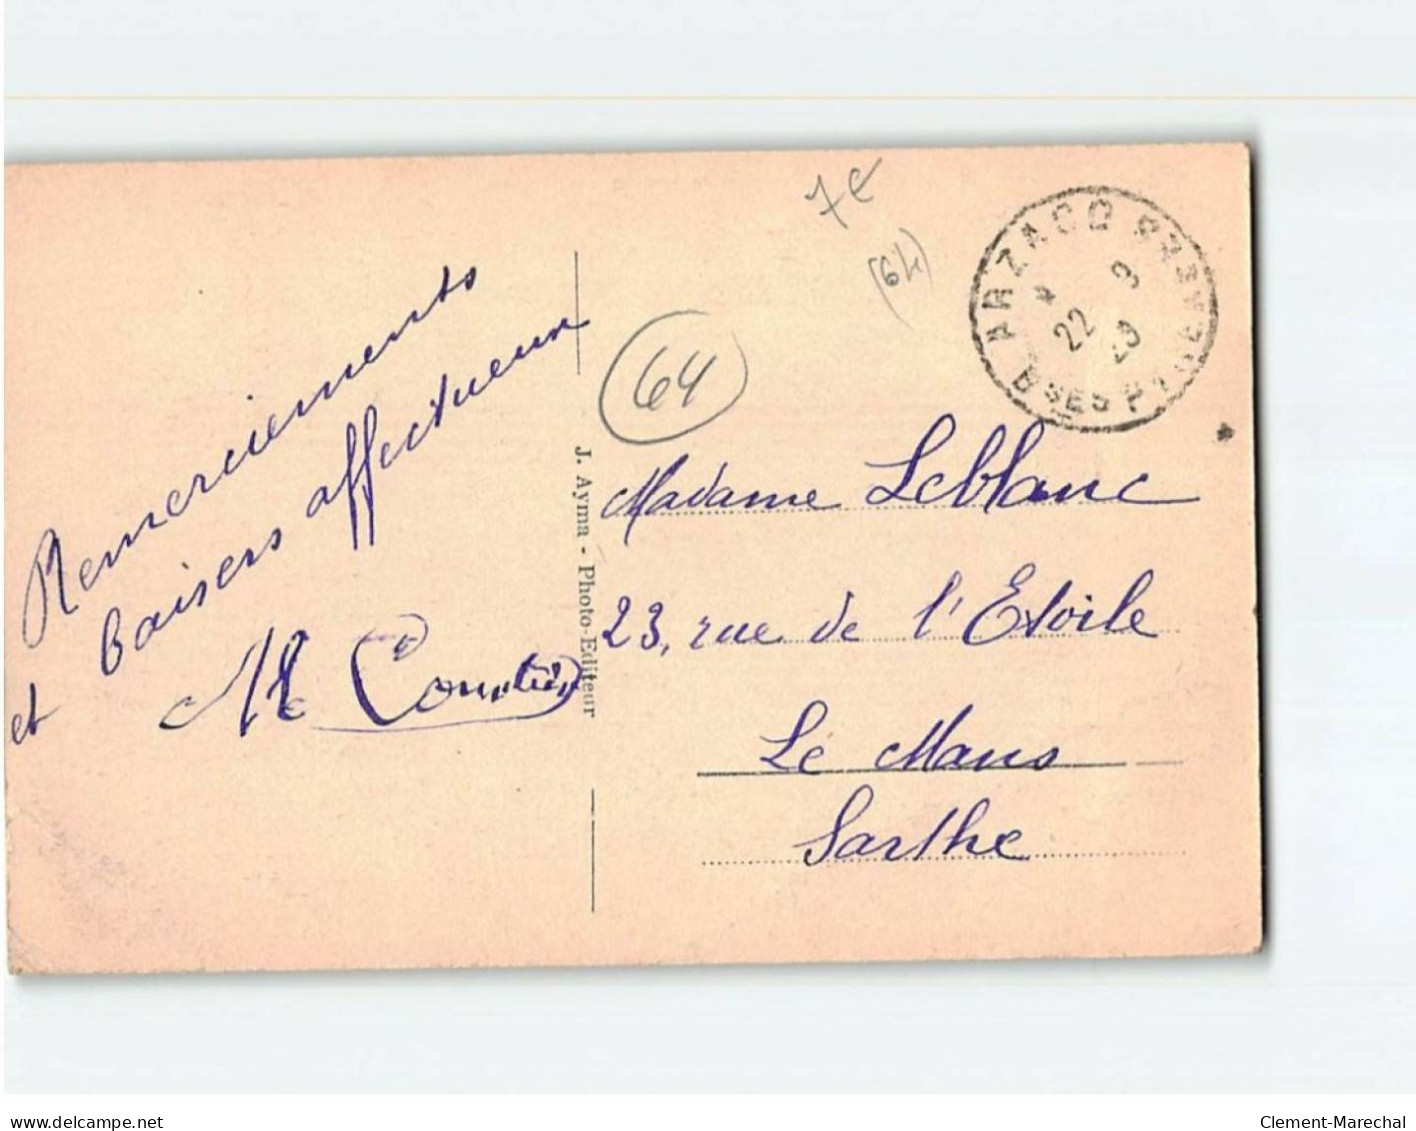 7€
(64)
64
ARZACQ
BSES PYRENEES
22 9
29
Remerciements
et baisers affectueux
J. Ayma - Photo-Editeur
Madame Leblanc
23, rue de l'Etoile
Le Mans
Sarthe
www.delcampe.net
Clement-Marechal